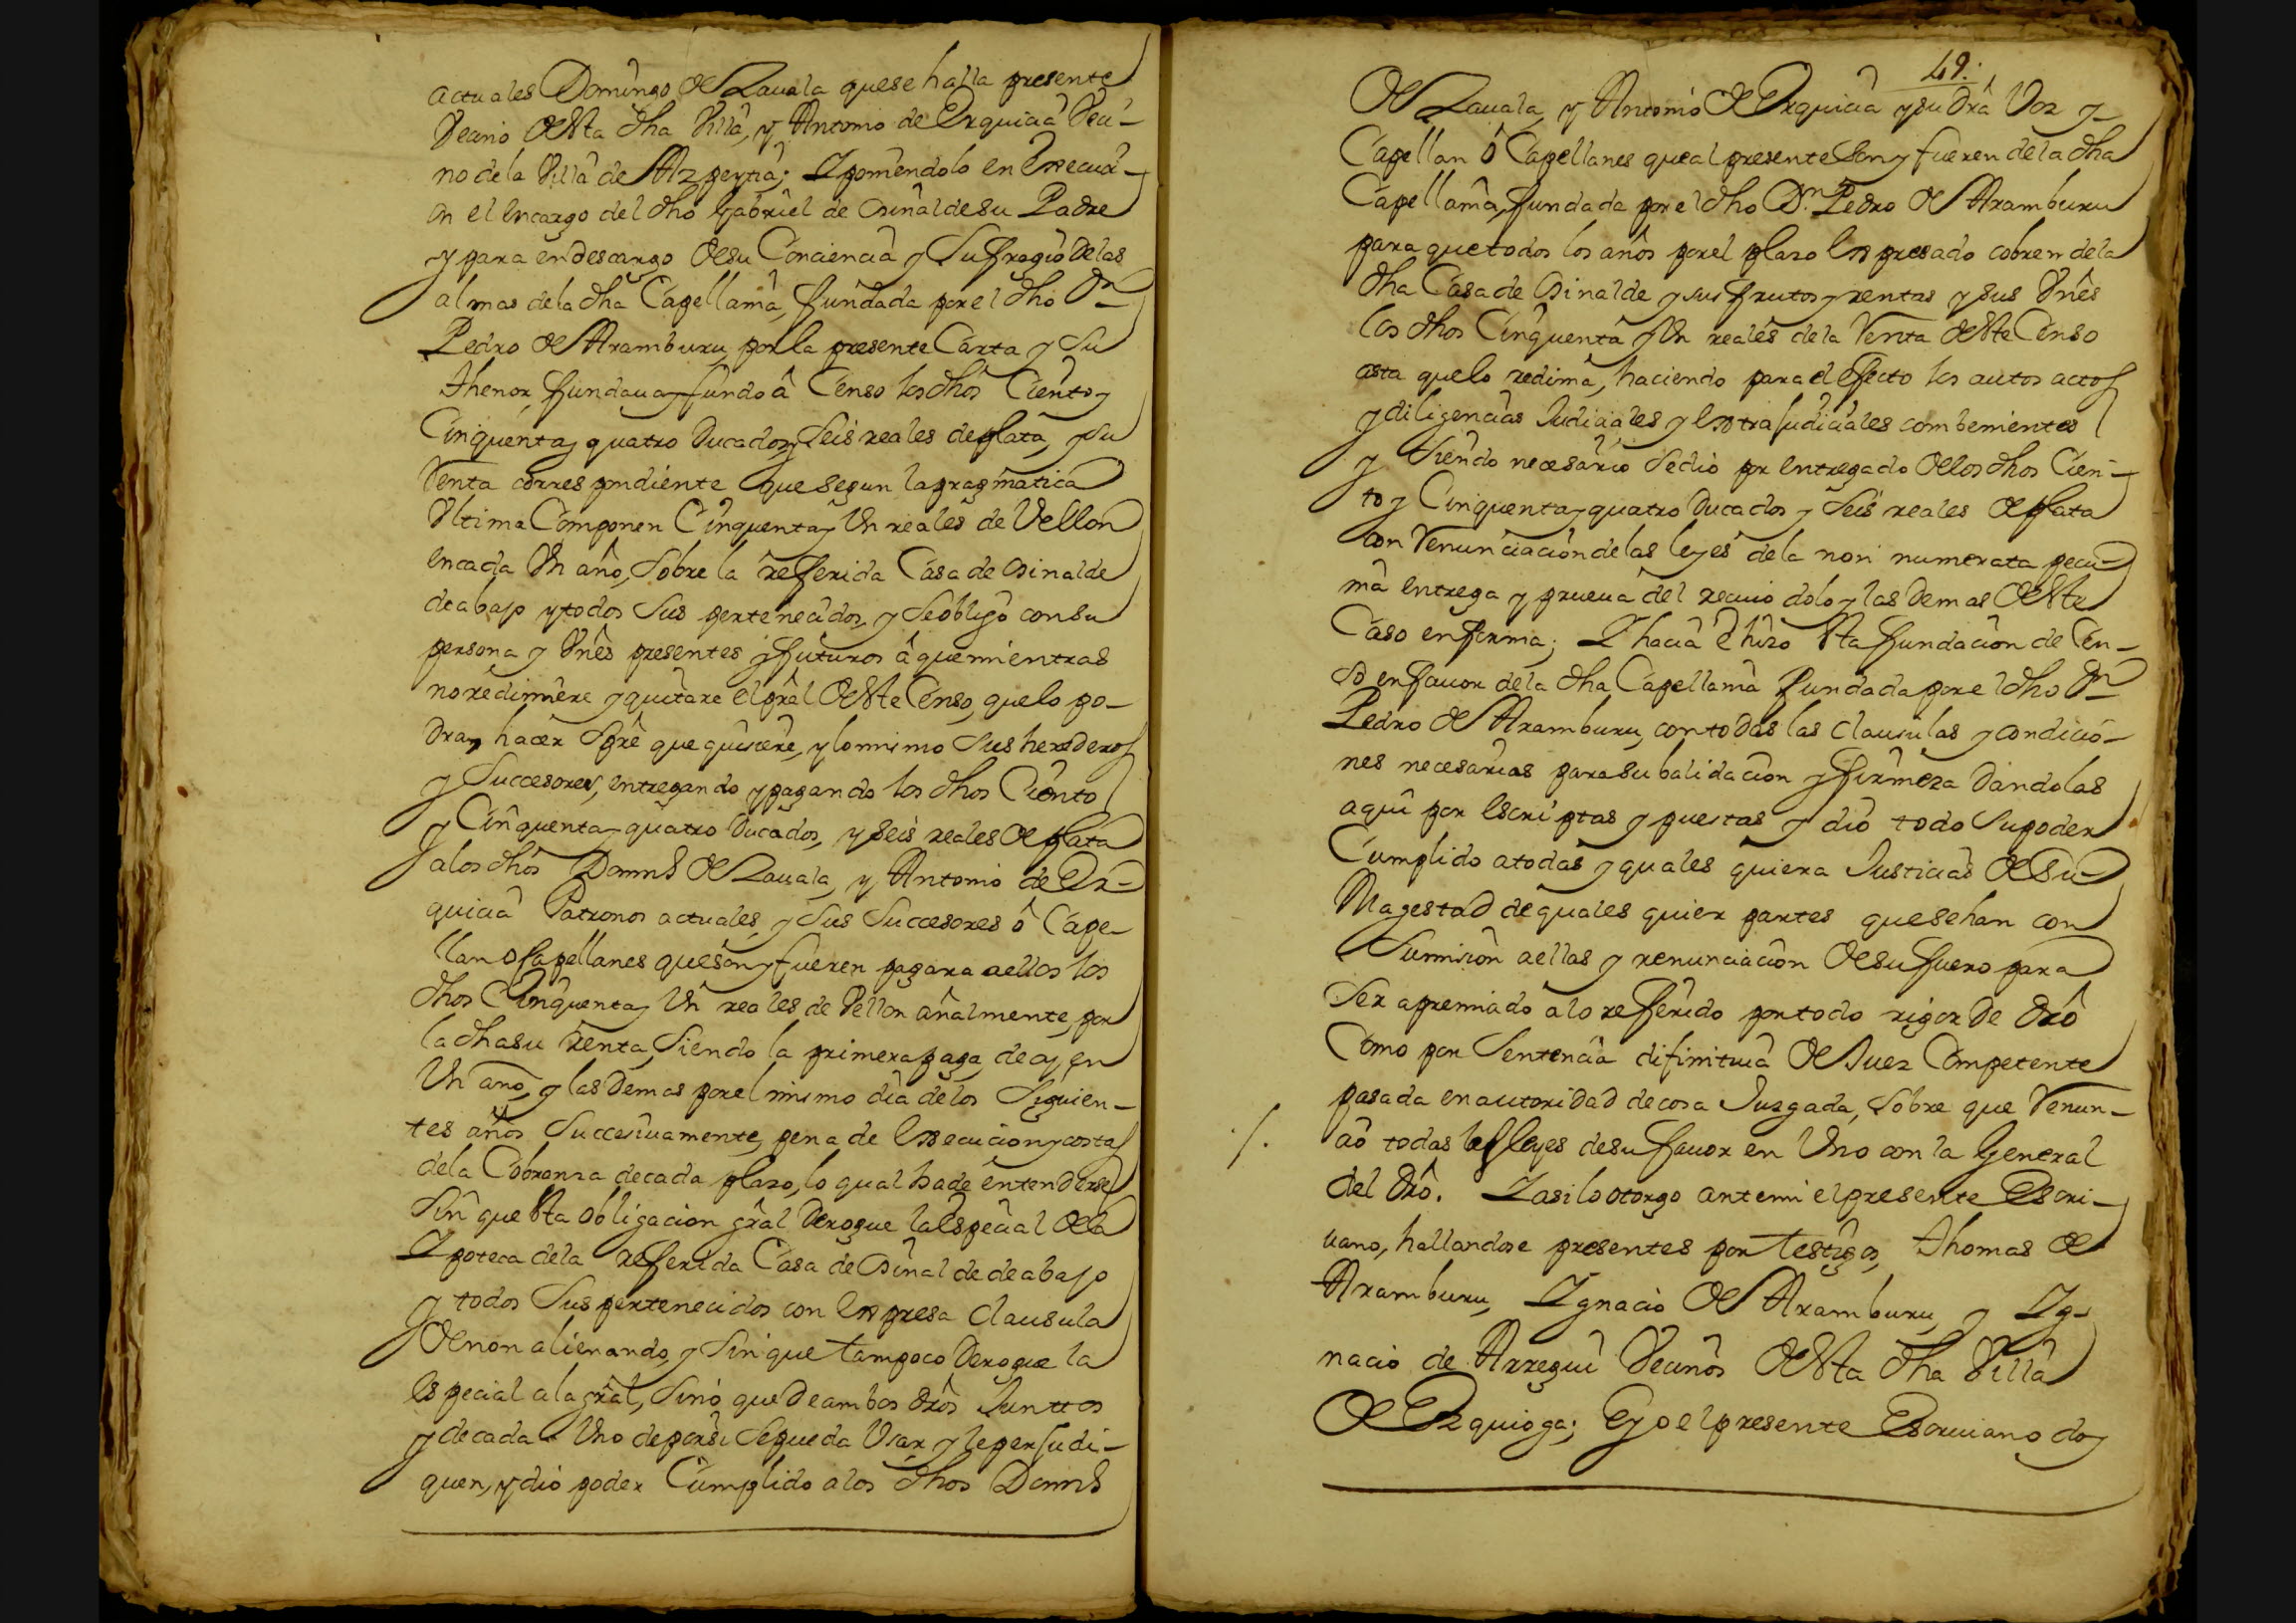 actuales Domingo de Zauala que se halla presente
Vecino desta dha Villa, y Antonio de Urquicia Veci-
no de la Villa de Azpeytia; Y poniendolo en Execuci-
on el encargo del dho Gabriel de Osinalde su Padre
y para en descargo de su Conciencia y Sufragio de las
almas de la dha Capellania, fundada por el dho Dn
Pedro de Aramburu, por la presente Carta y su
thenor, fundaua y fundo â Censo los dhos Ciento y
Cinquenta y quatro Ducados y Seis reales de plata, y su
Renta correspondiente que segun la pragmatica
Vltima Componen Cinquenta y Vn reales de Vellon
en cada Vn año, Sobre la referida Casa de Osinalde
de abajo y todos Sus pertenecidos, y Se obligo con su
persona y Vnês presentes y futuros â que mientras
no redimiere y quitare el prâl deste Censo, que lo po-
dra hacer Spre que quisiere, y lo mismo Sus herederos
y Succesores, entregando y pagando los dhos Ciento
y Cinquenta y quatro Ducados, y Seis reales de plata
a los dhos Domns de Zauala, y Antonio de Ur-
quicia Patronos actuales, y Sus Succesores ô Cape-
llan o Capellanes que son y fueren pagara a ellos los
dhos Cinquenta y Vn reales de Vellon añalmente, por
la dha su renta, Siendo la primera paga, de oy en
Vn año, y las Demas por el mismo dia de los Siguien-
tes años Succesiuamente, pena de Execucion y costas
de la Cobranza de cada plazo, lo qual ha de entenderse
Sin que esta obligacion grâl Derogue la Especial de la
Ypoteca de la referida Casa de Osinalde de abajo
y todos Sus pertenecidos con Expresa Clausula
de non alienando, y Sin que tampoco Derogue la
Especial a la grâl, Sino que De ambos drôs Junttos
y de cada Vno de por si Se pueda Vsar y le perjudi-
quen, y dio poder Cumplido a los dhos Domns
49.
De Zauala, y Antonio de Urquicia y su Drâ Voz y
Capellan ô Capellanes que al presente Son y fueren de la dha
Capellania, fundada por el dho Dn Pedro de Aramburu
para que todos los años por el plazo Expresado cobren de la
dha Casa de Osinalde y sus frutos y rentas y sus Vnês
los dhos Cinquenta y Vn reales de la Renta deste Censo
asta que lo redima, haciendo para el efecto los autos actos
y diligencias Judiciales y Extrajudiciales combenientes
y Siendo necesario Se dio por Entregado de los dhos Cien-
to y Cinquenta y quatro Ducados y Seis reales de plata
con Renunciacion de las leyes de la non numerata pecu-
nia entrega y prueua del reciuo dolo y las Demas deste
Caso en forma; Y hacia ê hizo esta fundacion de Cen-
so en fauor de la dha Capellania fundada por el dho Dn
Pedro de Aramburu, con todas las clausulas y condicio-
nes necesarias para su balidacion y firmeza Dandolas
aqui por Escriptas y puestas y dio todo Su poder
Cumplido a todas y quales quiera Justicias de Su
Magestad de quales quier partes que sehan con
Sumision a ellas y renunciacion de su fuero para
Ser apremiado â lo referido por todo rigor De drô
Como por Sentencia difinitiua de Juez Competente
pasada en autoridad de cosa Juzgada, Sobre que Renun-
cio todas las leyes de su fauor en Vno con la General
del drô. Y asi lo otorgo ante mi el presente Escri-
uano, hallandose presentes por testigos, Thomas de
Aramburu, Ygnacio de Aramburu, y Yg-
nacio de Arregui Vecinos desta dha Villa
de Ezquioga; E Yo el presente Escriuano doy